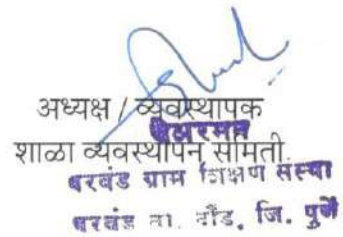 अध्यक्ष / व्यवस्थापक
चेअरमन
शाळा व्यवस्थापन समिती.
वरवंड ग्राम शिक्षण संस्था
वरवंड ता. दौंड, जि. पुणें